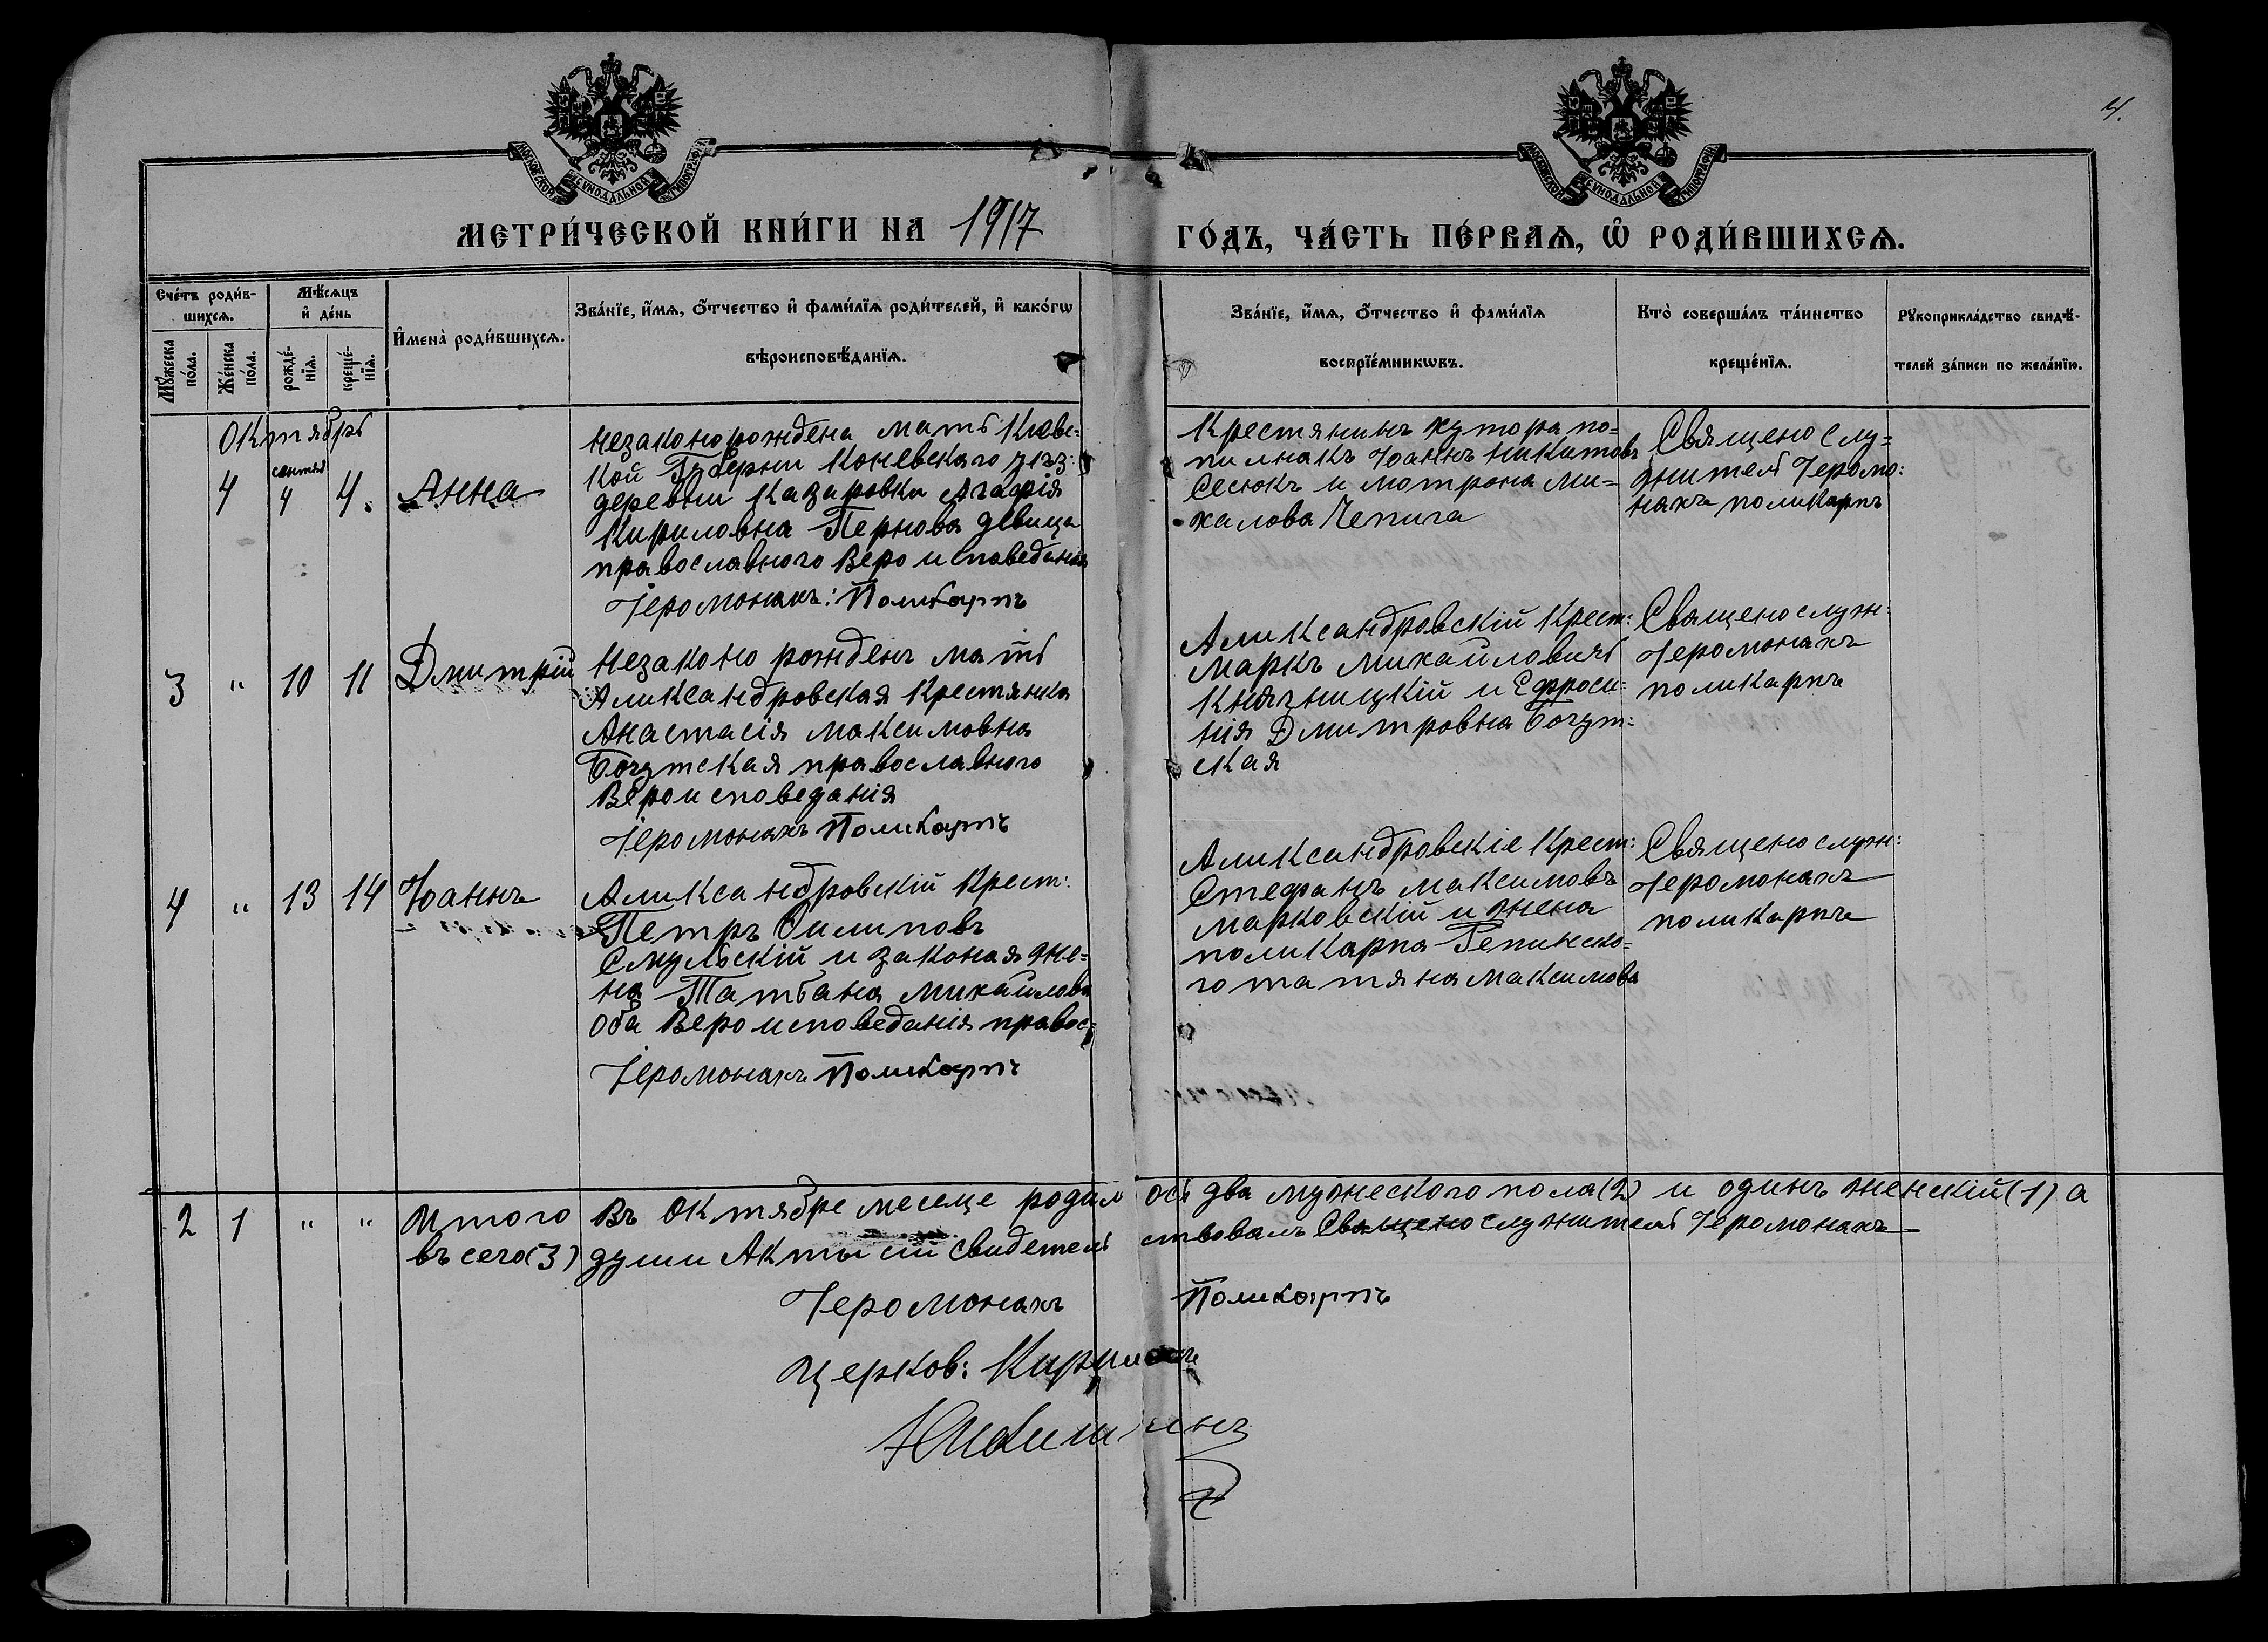 4.
МОСКОВСКОЙ СѴНОДАЛЬНОЙ ТИПОГРАФІИ
МОСКОВСКОЙ СѴНОДАЛЬНОЙ ТИПОГРАФІИ
МЕТРИ́ЧЕСКОЙ КНИ́ГИ НА 1917 ГО́ДЪ, ЧА́СТЬ ПЕ́РВАѦ, Ѡ҆ РОДИ́ВШИХСѦ.
Сче́тъ роди́в-
шихсѧ.
Мꙋ́жеска по́ла.
Же́нска по́ла.
Мѣ́сѧцъ
и҆ де́нь
рожде́-
нїѧ.
креще́-
нїѧ.
И҆мена̀ роди́вшихсѧ.
Зва́нїе, и҆́мѧ, ѻ҆́тчество и҆ фами́лїѧ роди́телей, и҆ како́гѡ
вѣроисповѣ́данїѧ.
Зва́нїе, и҆́мѧ, ѻ҆́тчество и҆ фами́лїѧ
воспрїе́мникѡвъ.
Кто̀ соверша́лъ та́инство
креще́нїѧ.
Рꙋкоприкла́дство свидѣ́-
телей за́писи по жела́нїю.
Октябрь
4 сентяб 4 4. Анна
незаконорождена мать Киев-
кой Губерни Коневскаго уез:
деревни Казаровки Агафія
Кириловна Пернова девица
православного Вероисповеданія
Іеромонахъ: Поликарпъ
Крестянинъ хутора по-
Іоаннъ Никитовъ
Сесюкъ и мотрона Ми-
халова Чепига
Священо слу-
жител Іеромо:
нахъ поликарпъ
3 " 10 11 Дмитрій
Незаконо рожденъ мать
Алиександровская Крестянка
Анастасія максимовна
Богутская православного
Вероисповеданія
Іеромонахъ Поликарпъ
Алиександровскій Крест:
Маркъ михайловичъ
Княжницкій и Ефроси-
нія Дмитровна Богут-
ская
Священо служ:
Іеромонахъ
поликарпъ
4 " 13 14 Іоаннъ
Алиександровскій Крест:
Петръ Филиповъ
Смульскій и законая же-
на Татьана михайлова
оба Вероисповеданія правос:
Іеромонахъ Поликарпъ
Алиександровскіе Крест:
Стефанъ максимовъ
марковскій и жена
поликарпа Репинско-
го татяна максимова
Священо служ:
Іеромонахъ
поликарпъ
2 1 " " Итого Въ Октябре месеце родилося два мужеского пола (2) и одинъ женскій (1) а
въ сего (3) души Акты сіи свидетельствовалъ Священо служитель Іеромонахъ
Іеромонахъ Поликарпъ
Церков: